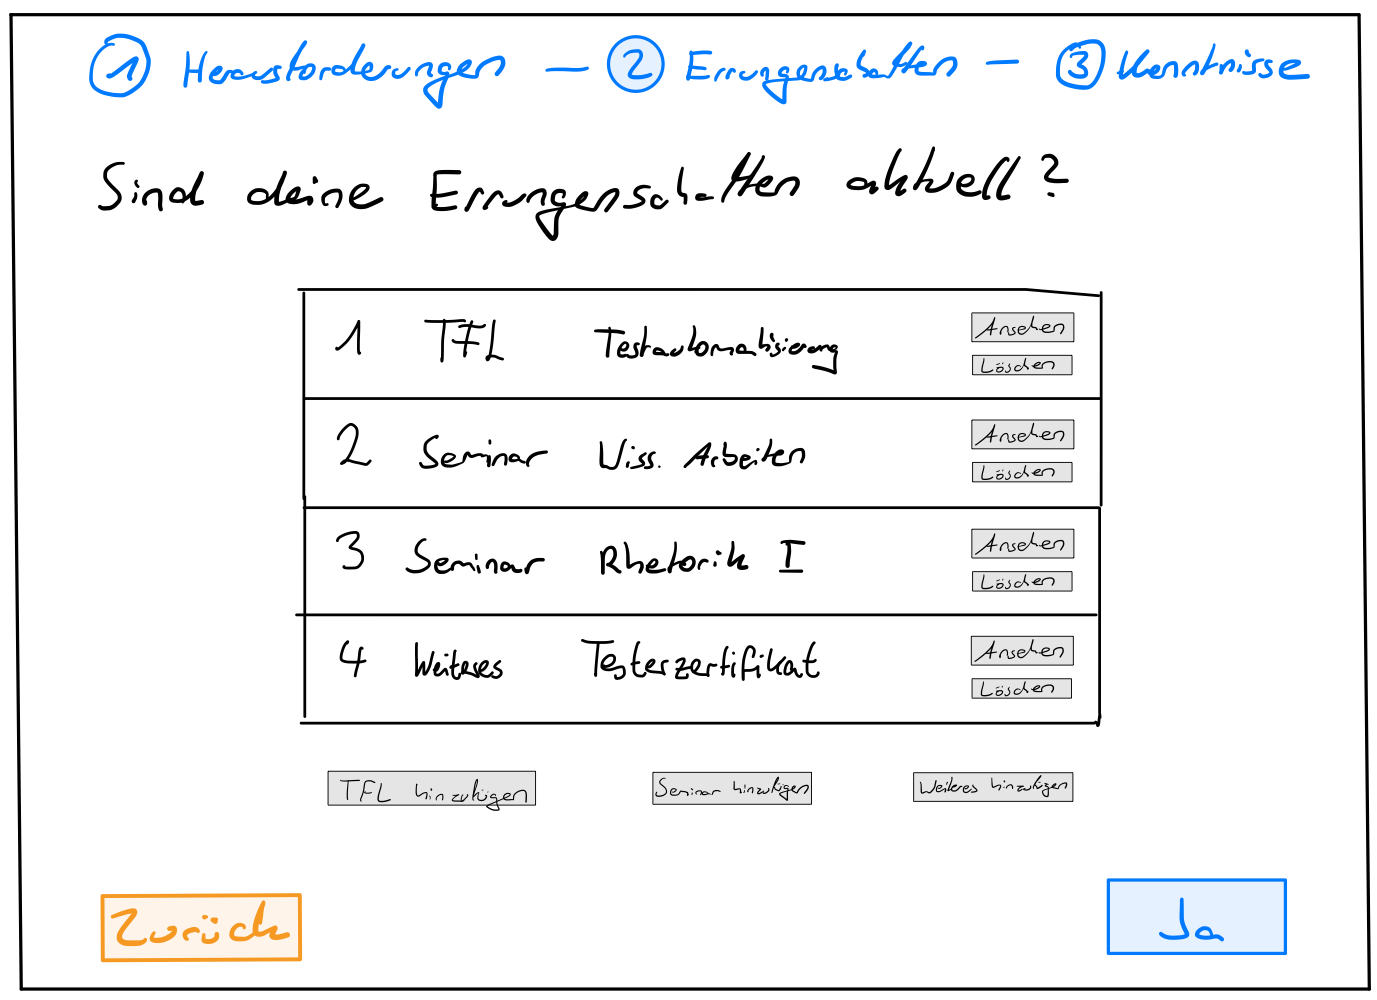 1 Herausforderungen — 2 Errungenschaften — 3 Kenntnisse
Sind deine Errungenschaften aktuell?
1 TFL Testautomatisierung Ansehen
Löschen
2 Seminar Wiss. Arbeiten Ansehen
Löschen
3 Seminar Rhetorik I Ansehen
Löschen
4 Weiteres Testerzertifikat Ansehen
Löschen
TFL hinzufügen Seminar hinzufügen Weiteres hinzufügen
Zurück Ja